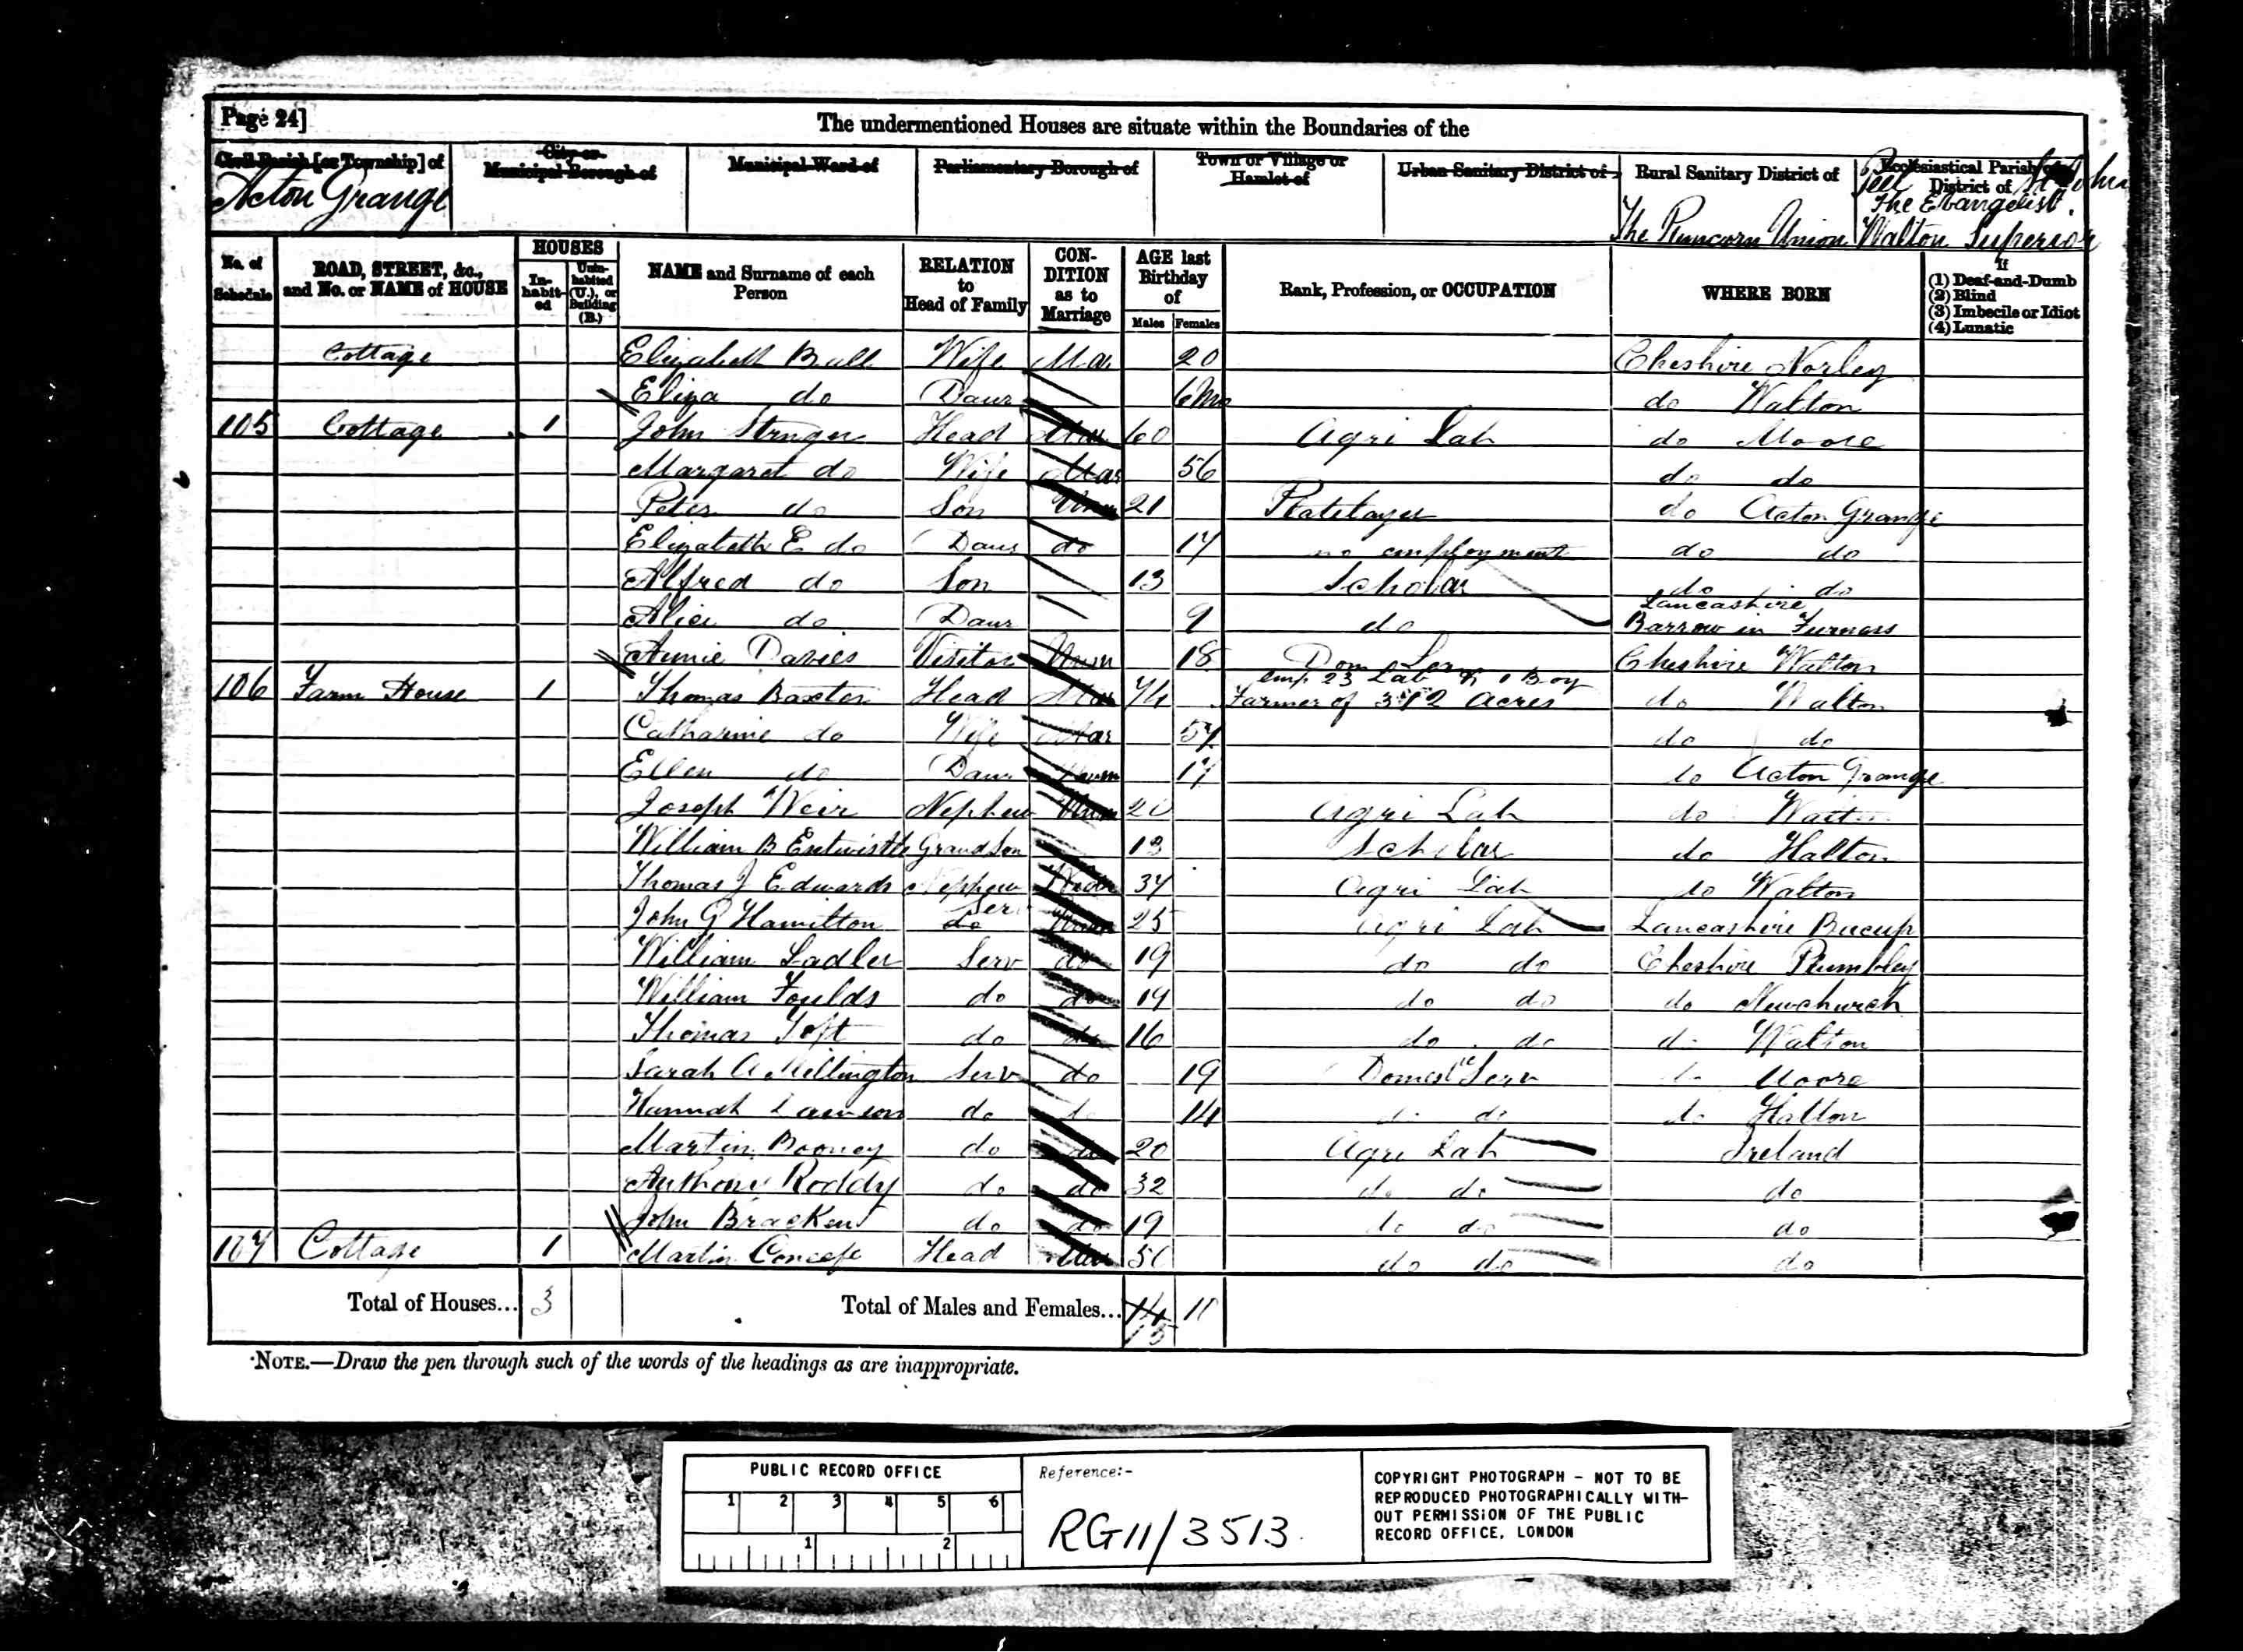 Page 24]
The undermentioned Houses are situate within the Boundaries of the
Civil Parish [or Township] of
City or Municipal Borough of
Municipal Ward of
Parliamentary Borough of
Town or Village or Hamlet of
Urban Sanitary District of
Rural Sanitary District of
Ecclesiastical Parish or District of
Acton Grange
The Runcorn Union
St John The Evangelist Walton Superior
No. of Schedule
ROAD, STREET, &c., and No. or NAME of HOUSE
HOUSES
In-habit-ed
Unin-habited (U.), or Building (B.)
NAME and Surname of each Person
RELATION to Head of Family
CON-DITION as to Marriage
AGE last Birthday of
Males Females
Rank, Profession, or OCCUPATION
WHERE BORN
If
(1) Deaf-and-Dumb
(2) Blind
(3) Imbecile or Idiot
(4) Lunatic
Cottage Elizabeth Ball Wife Mar 20 Cheshire Norley
Eliza do Daur 6 Mo do Walton
105 Cottage 1 John Stringer Head Mar 60 Agri Lab do Moore
Margaret do Wife Mar 56 do do
Peter do Son Unm 21 Platelayer do Acton Grange
Elizabeth E do Daur do 17 no employment do do
Alfred do Son 13 Scholar do do
Alice do Daur 9 do Lancashire Barrow in Furness
Annie Davies Visitor Unm 18 Dom Ser Cheshire Walton
106 Farm House 1 Thomas Baxter Head Mar 74 Farmer of 312 Acres emp 23 Lab & 1 Boy do Walton
Catharine do Wife Mar 57 do do
Ellen do Daur Unm 17 do Acton Grange
Joseph Weir Nephew Unm 20 Agri Lab do Walton
William B Entwistle Grandson 13 Scholar do Halton
Thomas J Edwards Nephew 37 Agri Lab do Walton
John G Hamilton do Ser 25 Agri Lab Lancashire Bucup
William Sadler Serv do 19 do do Cheshire Plumbley
William Foulds do do 19 do do do Newchurch
Thomas Toft do do 16 do do do Walton
Sarah A Millington Serv do 19 Domest Serv do Moore
Hannah Lawson do do 14 do do do Halton
Martin Rooney do do 20 Agri Lab Ireland
Anthony Roddy do do 32 do do do
John Bracken do do 19 do do do
107 Cottage 1 Martin Head Mar 50 do do do
Total of Houses... 3
Total of Males and Females... 14 15 11
NOTE.—Draw the pen through such of the words of the headings as are inappropriate.
PUBLIC RECORD OFFICE
1 2 3 4 5 6
1 2
Reference:-
RG11/3513
COPYRIGHT PHOTOGRAPH - NOT TO BE
REPRODUCED PHOTOGRAPHICALLY WITH-
OUT PERMISSION OF THE PUBLIC
RECORD OFFICE, LONDON